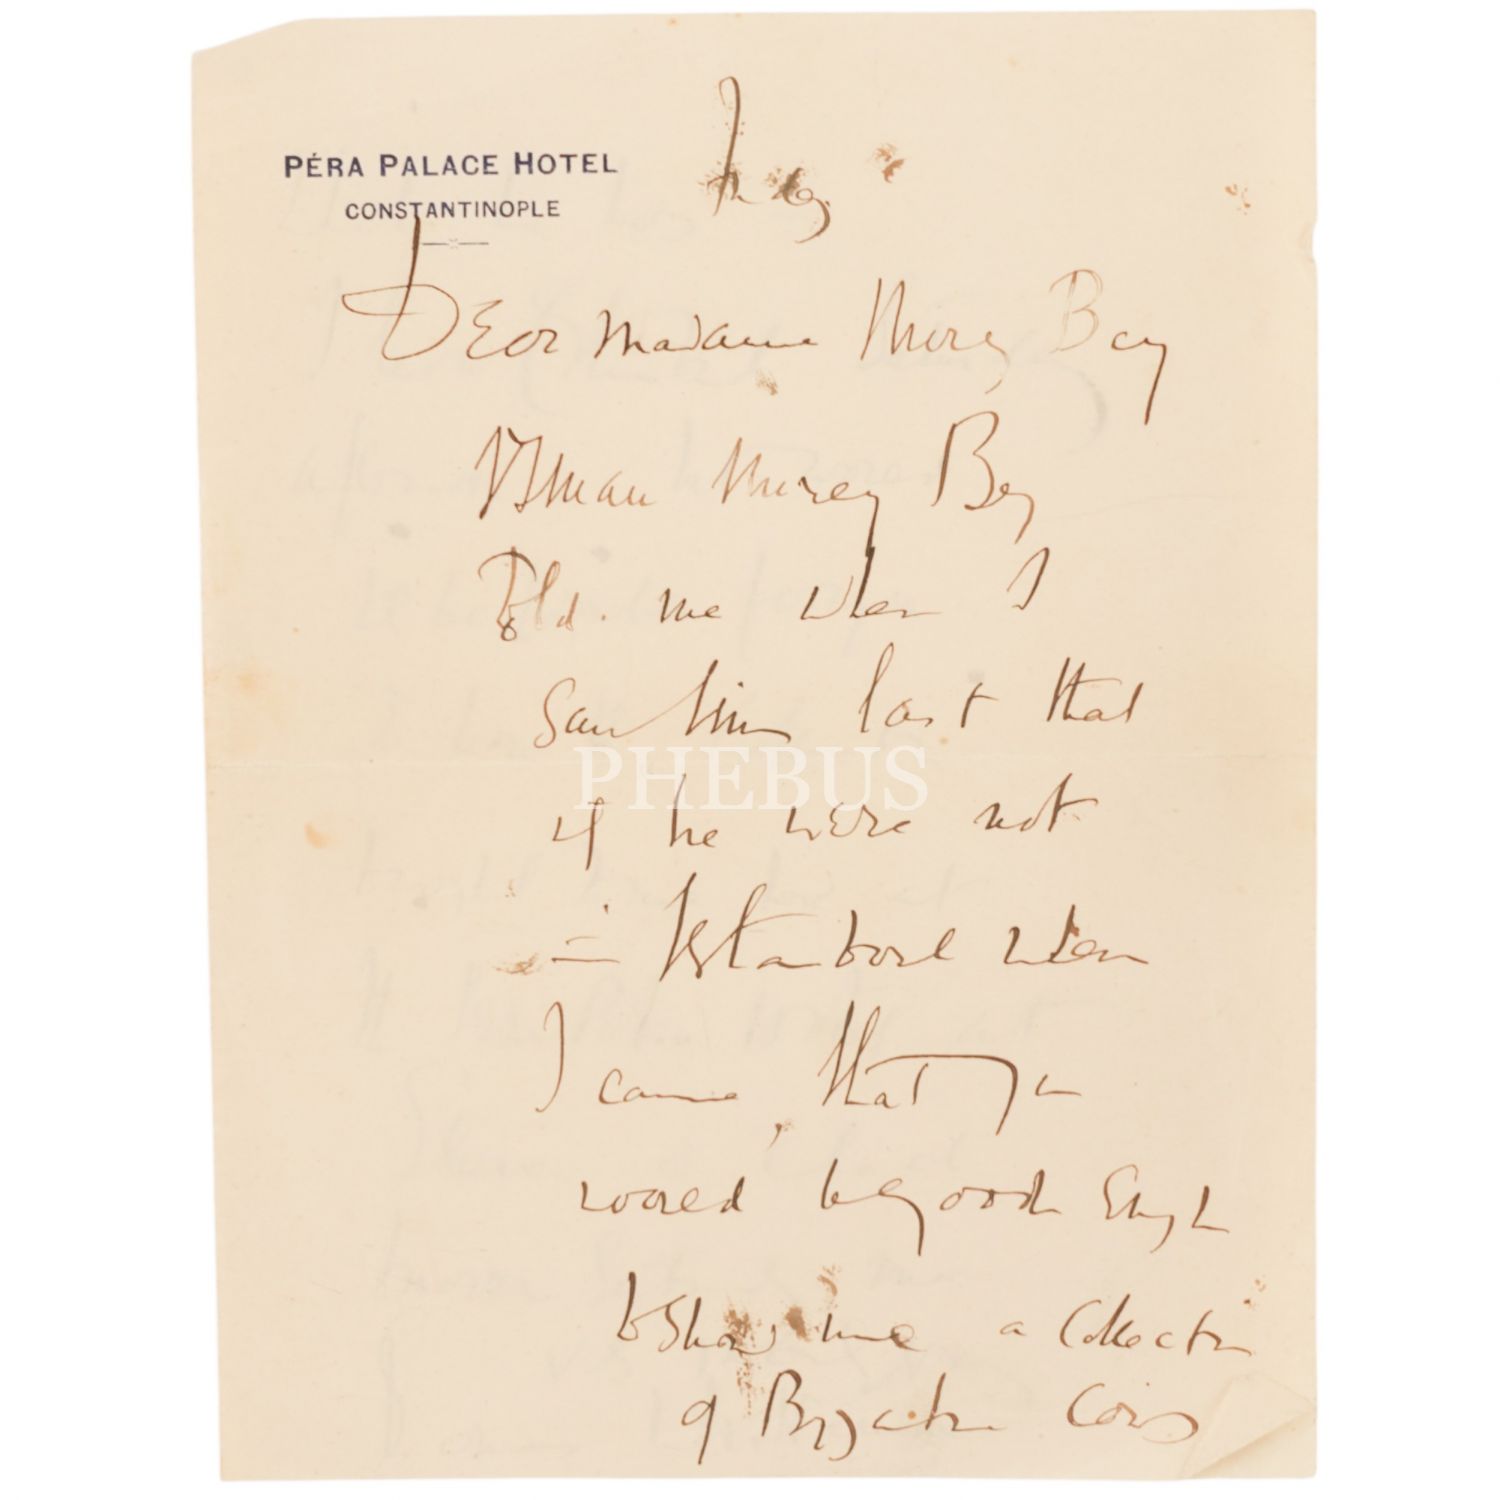 PÉRA PALACE HOTEL
CONSTANTINOPLE
Dear Madame Bey
Bey
told. me when I
saw him last that
PHEBUS
if he were not
in Istanboul when
I came, that you
would be good enough
to show me a collection
of Byzantine coins